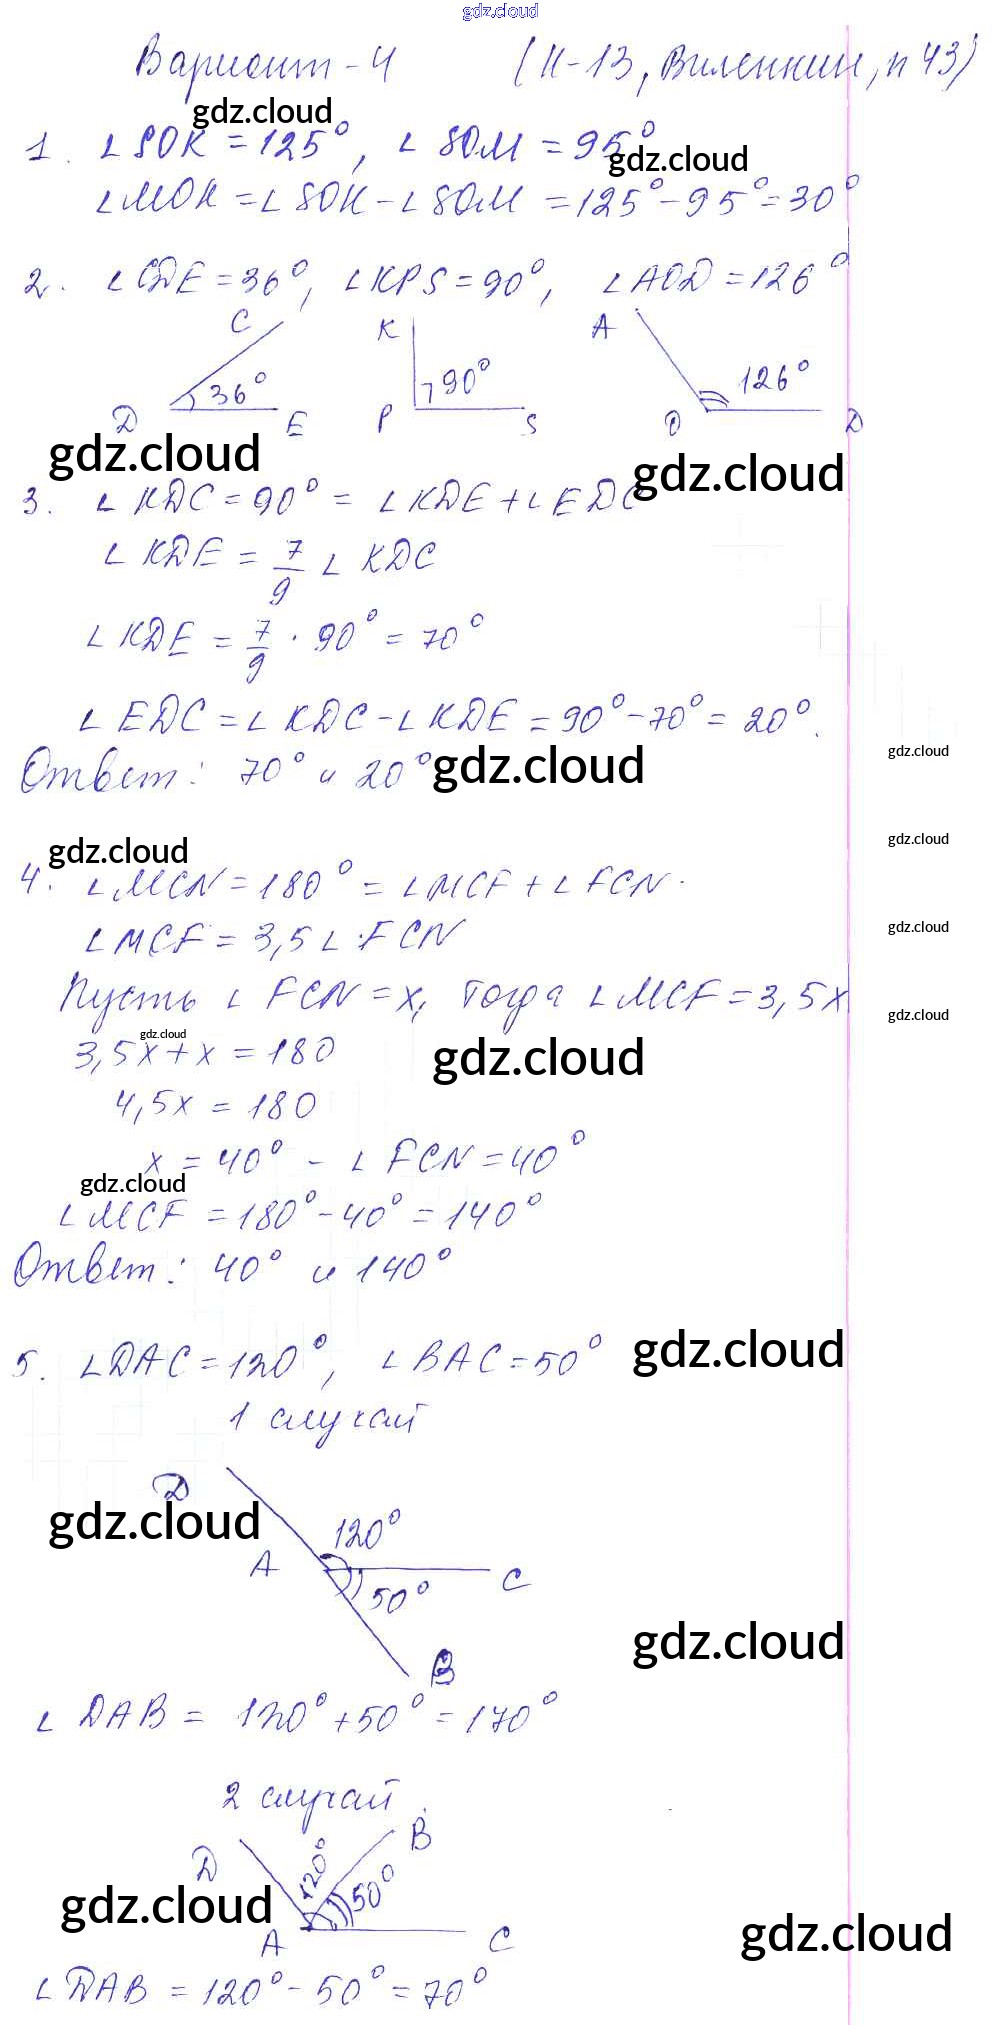 gdz.cloud
Вариант-4 (К-13, Виленкин, п 43)
gdz.cloud
1. ∠SOK = 125°, ∠SOM = 95°
gdz.cloud
∠MOK = ∠SOK - ∠SOM = 125° - 95° = 30°
2. ∠CDE = 36°, ∠KPS = 90°, ∠AOD = 126°
C K A
36° 90° 126°
D E P S O D
gdz.cloud gdz.cloud
3. ∠KDC = 90° = ∠KDE + ∠EDC
∠KDE = 7/9 ∠KDC
∠KDE = 7/9 · 90° = 70°
∠EDC = ∠KDC - ∠KDE = 90° - 70° = 20°.
Ответ: 70° и 20°
gdz.cloud gdz.cloud
gdz.cloud gdz.cloud
4. ∠MCN = 180° = ∠MCF + ∠FCN.
∠MCF = 3,5 ∠FCN
gdz.cloud
Пусть ∠FCN = x, тогда ∠MCF = 3,5x
gdz.cloud
gdz.cloud
3,5x + x = 180
gdz.cloud
4,5x = 180
x = 40° - ∠FCN = 40°
gdz.cloud
∠MCF = 180° - 40° = 140°
Ответ: 40° и 140°
5. ∠DAC = 120°, ∠BAC = 50°
gdz.cloud
1 случай
D
gdz.cloud
120°
A C
50°
gdz.cloud
B
∠DAB = 120° + 50° = 170°
2 случай.
D B
120° 50°
gdz.cloud gdz.cloud
A C
∠DAB = 120° - 50° = 70°